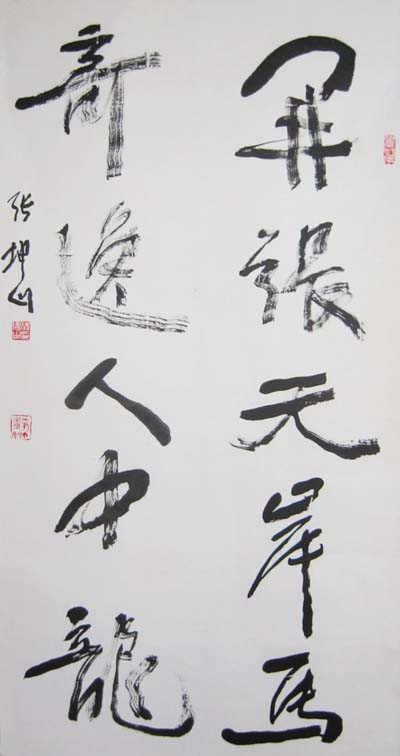 開張天岸馬
奇逸人中龍
张坤山